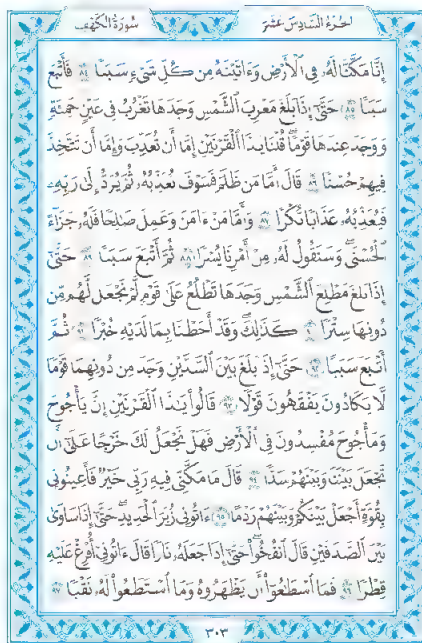 الجزء السادس عشر
سورة الكهف
إِنَّا مَكَّنَّا لَهُۥ فِى ٱلْأَرْضِ وَءَاتَيْنَٰهُ مِن كُلِّ شَىْءٍ سَبَبًا ٨٤ فَأَتْبَعَ
سَبَبًا ٨٥ حَتَّىٰٓ إِذَا بَلَغَ مَغْرِبَ ٱلشَّمْسِ وَجَدَهَا تَغْرُبُ فِى عَيْنٍ حَمِئَةٍ
وَوَجَدَ عِندَهَا قَوْمًا ۗ قُلْنَا يَٰذَا ٱلْقَرْنَيْنِ إِمَّآ أَن تُعَذِّبَ وَإِمَّآ أَن تَتَّخِذَ
فِيهِمْ حُسْنًا ٨٦ قَالَ أَمَّا مَن ظَلَمَ فَسَوْفَ نُعَذِّبُهُۥ ثُمَّ يُرَدُّ إِلَىٰ رَبِّهِۦ
فَيُعَذِّبُهُۥ عَذَابًا نُّكْرًا ٨٧ وَأَمَّا مَنْ ءَامَنَ وَعَمِلَ صَٰلِحًا فَلَهُۥ جَزَآءً
ٱلْحُسْنَىٰ ۖ وَسَنَقُولُ لَهُۥ مِنْ أَمْرِنَا يُسْرًا ٨٨ ثُمَّ أَتْبَعَ سَبَبًا ٨٩ حَتَّىٰٓ
إِذَا بَلَغَ مَطْلِعَ ٱلشَّمْسِ وَجَدَهَا تَطْلُعُ عَلَىٰ قَوْمٍ لَّمْ نَجْعَل لَّهُم مِّن
دُونِهَا سِتْرًا ٩٠ كَذَٰلِكَ وَقَدْ أَحَطْنَا بِمَا لَدَيْهِ خُبْرًا ٩١ ثُمَّ
أَتْبَعَ سَبَبًا ٩٢ حَتَّىٰٓ إِذَا بَلَغَ بَيْنَ ٱلسَّدَّيْنِ وَجَدَ مِن دُونِهِمَا قَوْمًا
لَّا يَكَادُونَ يَفْقَهُونَ قَوْلًا ٩٣ قَالُوا۟ يَٰذَا ٱلْقَرْنَيْنِ إِنَّ يَأْجُوجَ
وَمَأْجُوجَ مُفْسِدُونَ فِى ٱلْأَرْضِ فَهَلْ نَجْعَلُ لَكَ خَرْجًا عَلَىٰٓ أَن
تَجْعَلَ بَيْنَنَا وَبَيْنَهُمْ سَدًّا ٩٤ قَالَ مَا مَكَّنِّى فِيهِ رَبِّى خَيْرٌ فَأَعِينُونِى
بِقُوَّةٍ أَجْعَلْ بَيْنَكُمْ وَبَيْنَهُمْ رَدْمًا ٩٥ ءَاتُونِى زُبَرَ ٱلْحَدِيدِ ۖ حَتَّىٰٓ إِذَا سَاوَىٰ
بَيْنَ ٱلصَّدَفَيْنِ قَالَ ٱنفُخُوا۟ ۖ حَتَّىٰٓ إِذَا جَعَلَهُۥ نَارًا قَالَ ءَاتُونِىٓ أُفْرِغْ عَلَيْهِ
قِطْرًا ٩٦ فَمَا ٱسْطَٰعُوٓا۟ أَن يَظْهَرُوهُ وَمَا ٱسْتَطَٰعُوا۟ لَهُۥ نَقْبًا ٩٧
٣٠٣